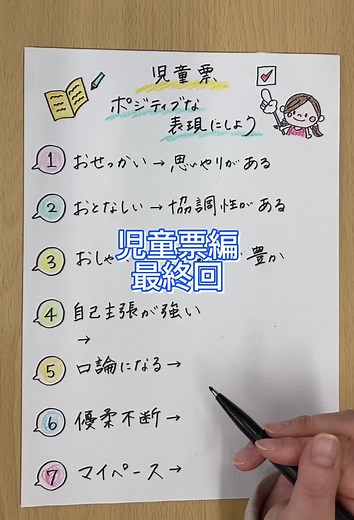 児童票
ポジティブな
表現にしよう
1 おせっかい→思いやりがある
2 おとなしい→協調性がある
3 おしゃ
豊か
児童票編
最終回
4 自己主張が強い
→
5 口論になる→
6 優柔不断→
7 マイペース→